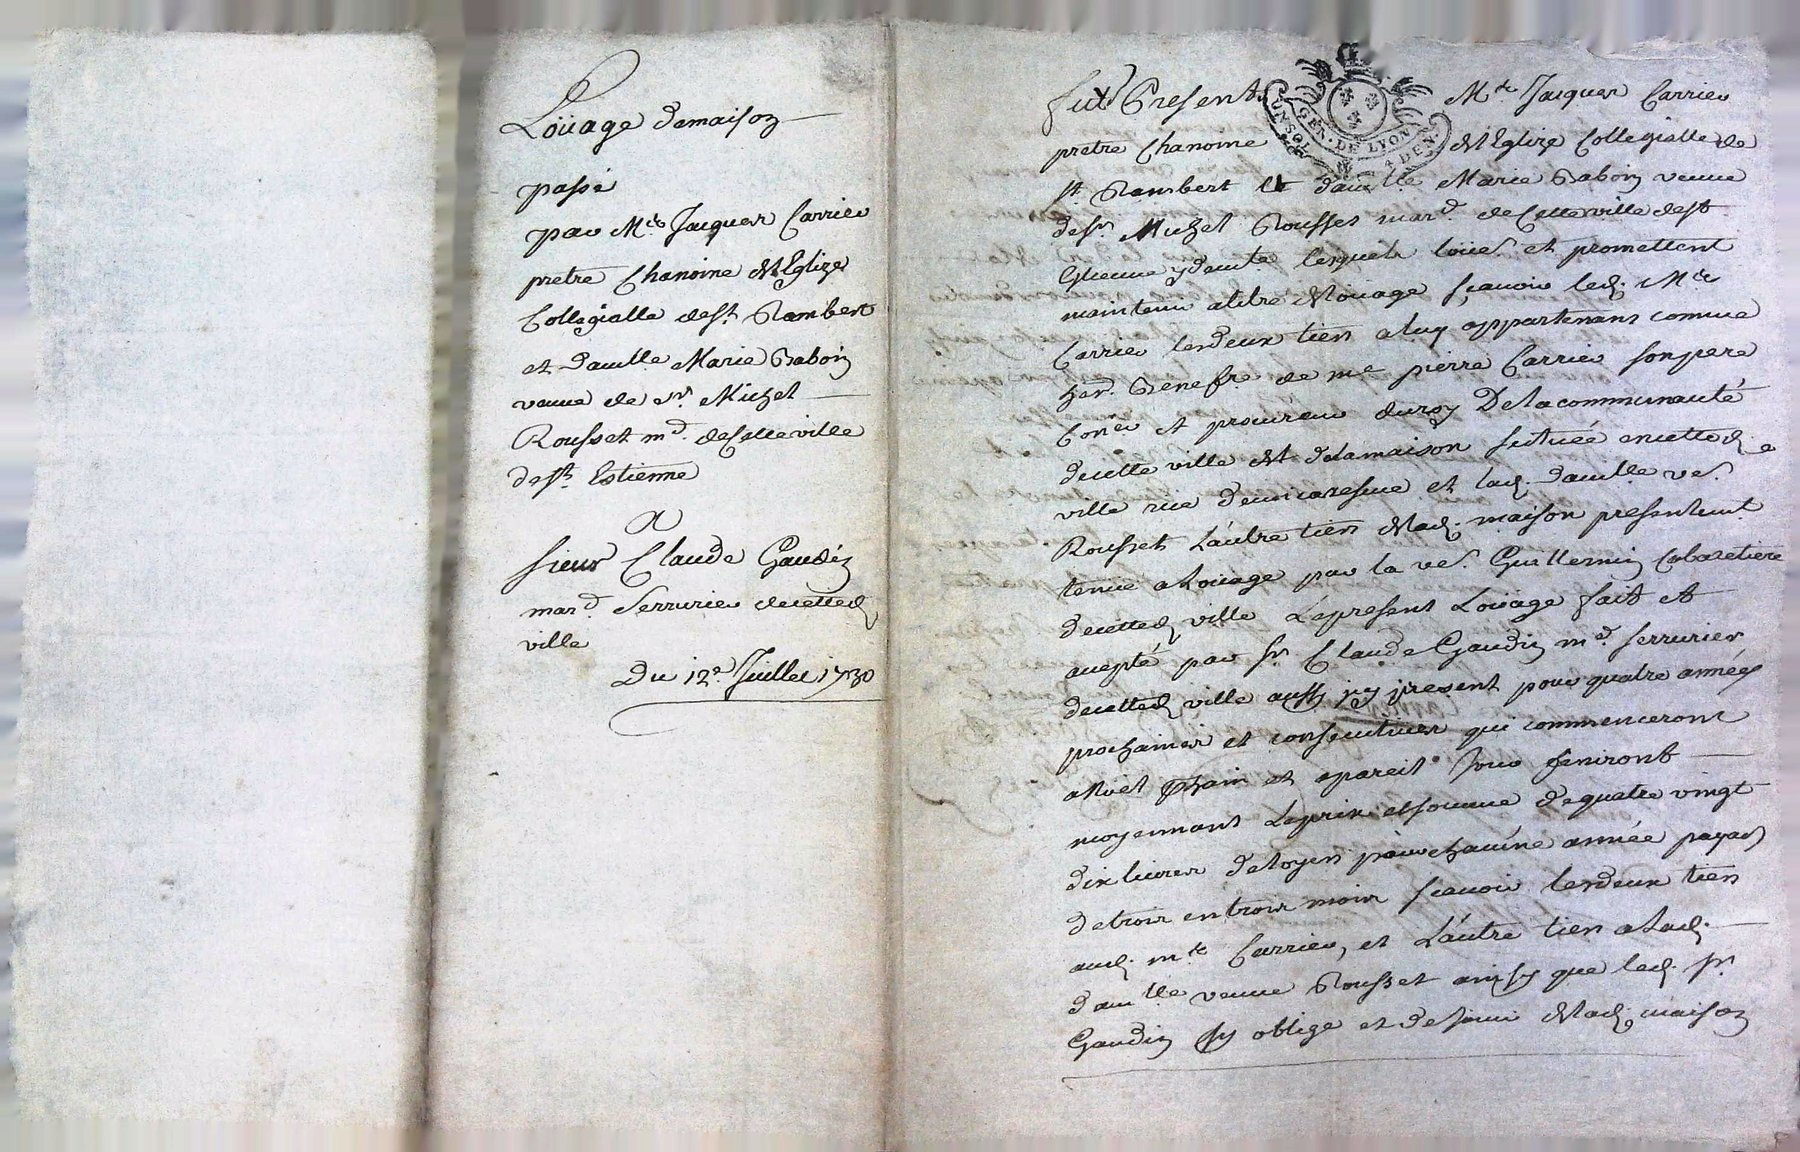 Loüage demaison
passé
par Mre Jacques Carrier
pretre Chanoine del Eglize
Collegialle de St. Rambert
et damlle Marie Baboin
veuve de sr. Michel
Rousset md. de cette ville
de St. Estienne
A
sieur Claude Gaudin
mard serrurier de cetted
ville
Du 12e Juillet 1730
fut Present Mre Jacques Carrier
pretre Chanoine del Eglize Collegialle de
st. Rambert et damlle Marie Baboin veuve
de sr. Michel Rousset mard de cette ville de st
Estienne y demte lesquels loües et promettent
maintenir a titre de loüage sçavoir led. Mre
Carrier les deux tiers a luy appartenans comme
her. Benefre de me pierre Carrier son pere
Coner et procureur du roy De la communauté
de cette ville et de la maison scituée en cetted
ville rue et lad. damlle ve.
Rousset L'autre tiers de lad. maison presentemt
tenue a Loüage par la ve. Guillermin Cabaretiere
de cetted ville Le present Loüage fait et
accepté par sr. Claude Gaudin md serrurier
de cetted ville aussy icy present pour quatre années
prochaines et consecutives qui commenceront
a Noel pchain et a pareil jour finiront
moyennant Le prix et somme de quatre vingt
dix livres de loyers pour chacune année payab
de trois en trois mois scavoir les deux tiers
aud. mre Carrier, et L'autre tiers a lad.
damlle veuve Rousset ainsy que led. sr
Gaudin s'y oblige et de jouir de lad. maison
GEN. DE LYON
UN SOL
4 DEN.